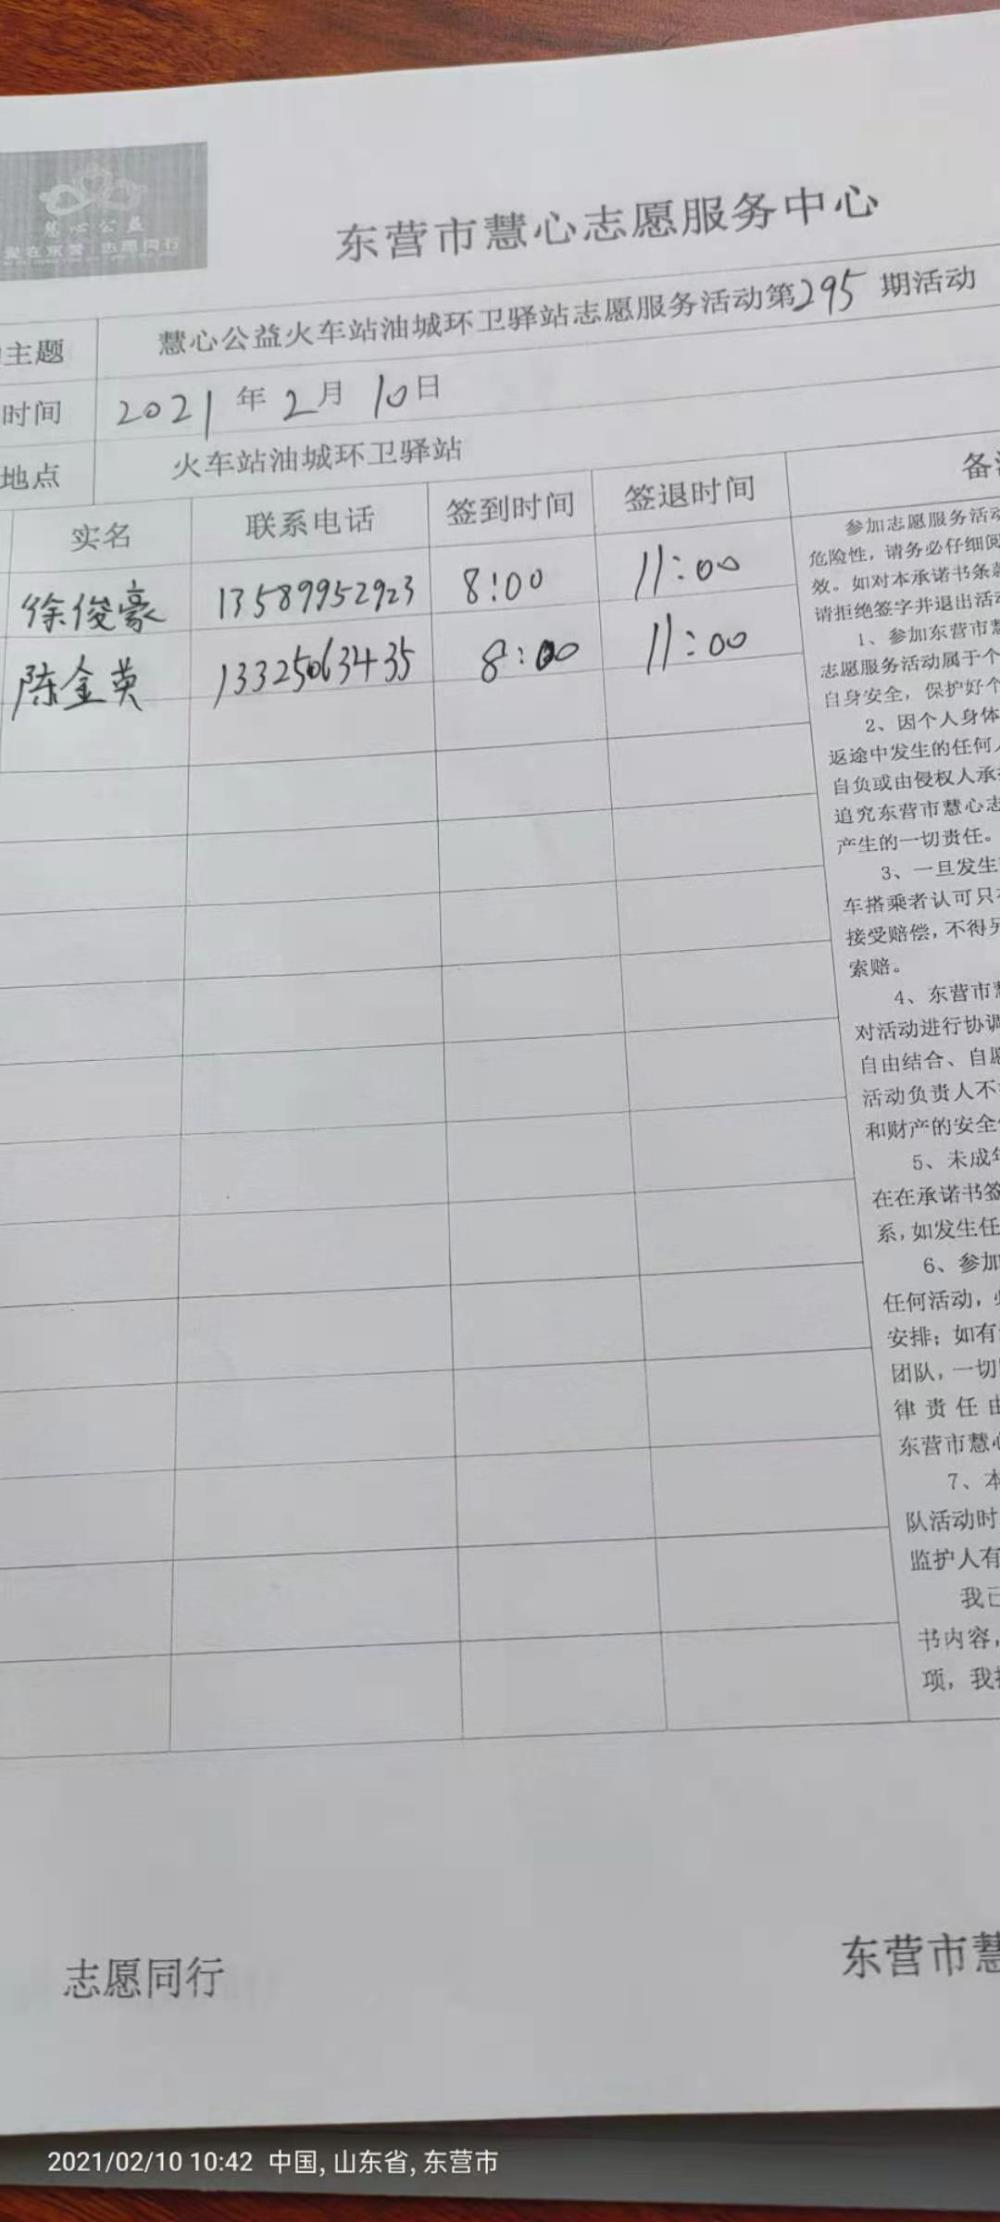 慧心公益
爱在东营 志愿同行
东营市慧心志愿服务中心
主题 慧心公益火车站油城环卫驿站志愿服务活动第295期活动
时间 2021年2月10日
地点 火车站油城环卫驿站
实名 联系电话 签到时间 签退时间 备
徐俊豪 13589952923 8:00 11:00
陈金英 13325063435 8:00 11:00
参加志愿服务活
危险性，请务必仔细阅
效。如对本承诺书条
请拒绝签字并退出活
1、参加东营市
志愿服务活动属于个
自身安全，保护好个
2、因个人身体
返途中发生的任何
自负或由侵权人承
追究东营市慧心志
产生的一切责任。
3、一旦发生
车搭乘者认可只
接受赔偿，不得另
索赔。
4、东营市
对活动进行协调
自由结合、自愿
活动负责人不
和财产的安全
5、未成年
在在承诺书签
系，如发生任
6、参加
任何活动，
安排；如有
团队，一切
律责任由
东营市慧心
7、本
队活动时
监护人有
我已
书内容，
项，我
志愿同行 东营市慧
2021/02/10 10:42 中国, 山东省, 东营市